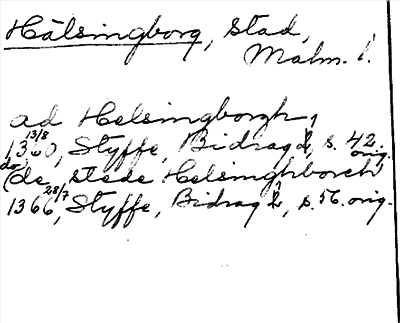 Hälsingborg, stad,
Malm. l.
ad Helsingborgh,
1360 13/8, Styffe, Bidrag 1, s. 42. orig.
do, (de stede Helsinghborch)
1366 28/7, Styffe, Bidrag 1, s. 56. orig.